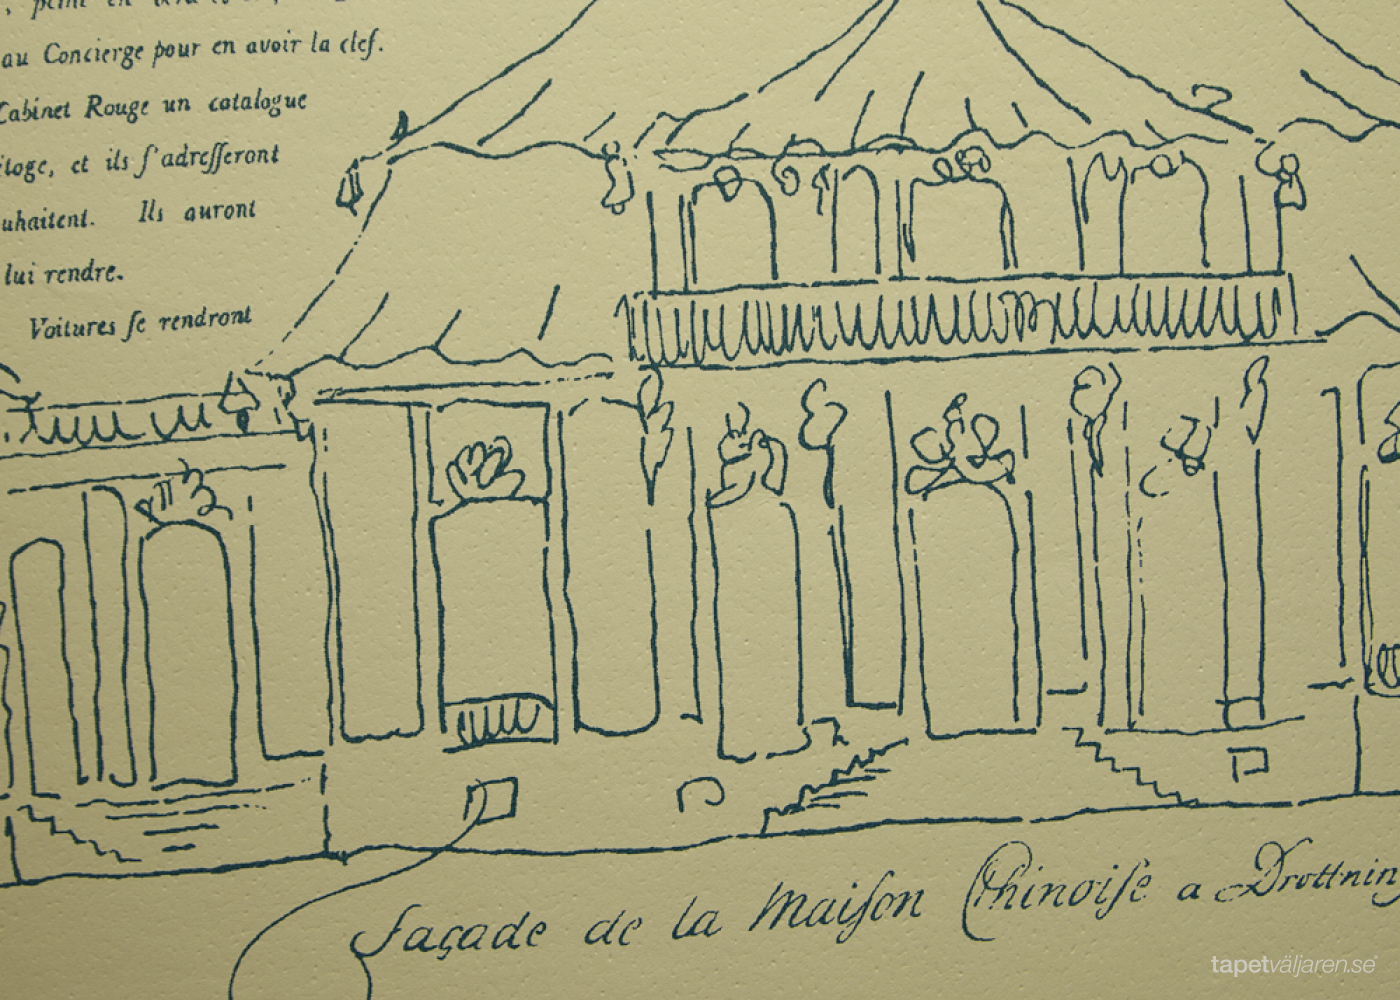 au Concierge pour en avoir la clef.
Cabinet Rouge un catalogue
et ils ſ'adreſſeront
Ils auront
lui rendre.
Voitures ſe rendront
façade de la Maiſon Chinoiſe a Drottning
tapetväljaren.se